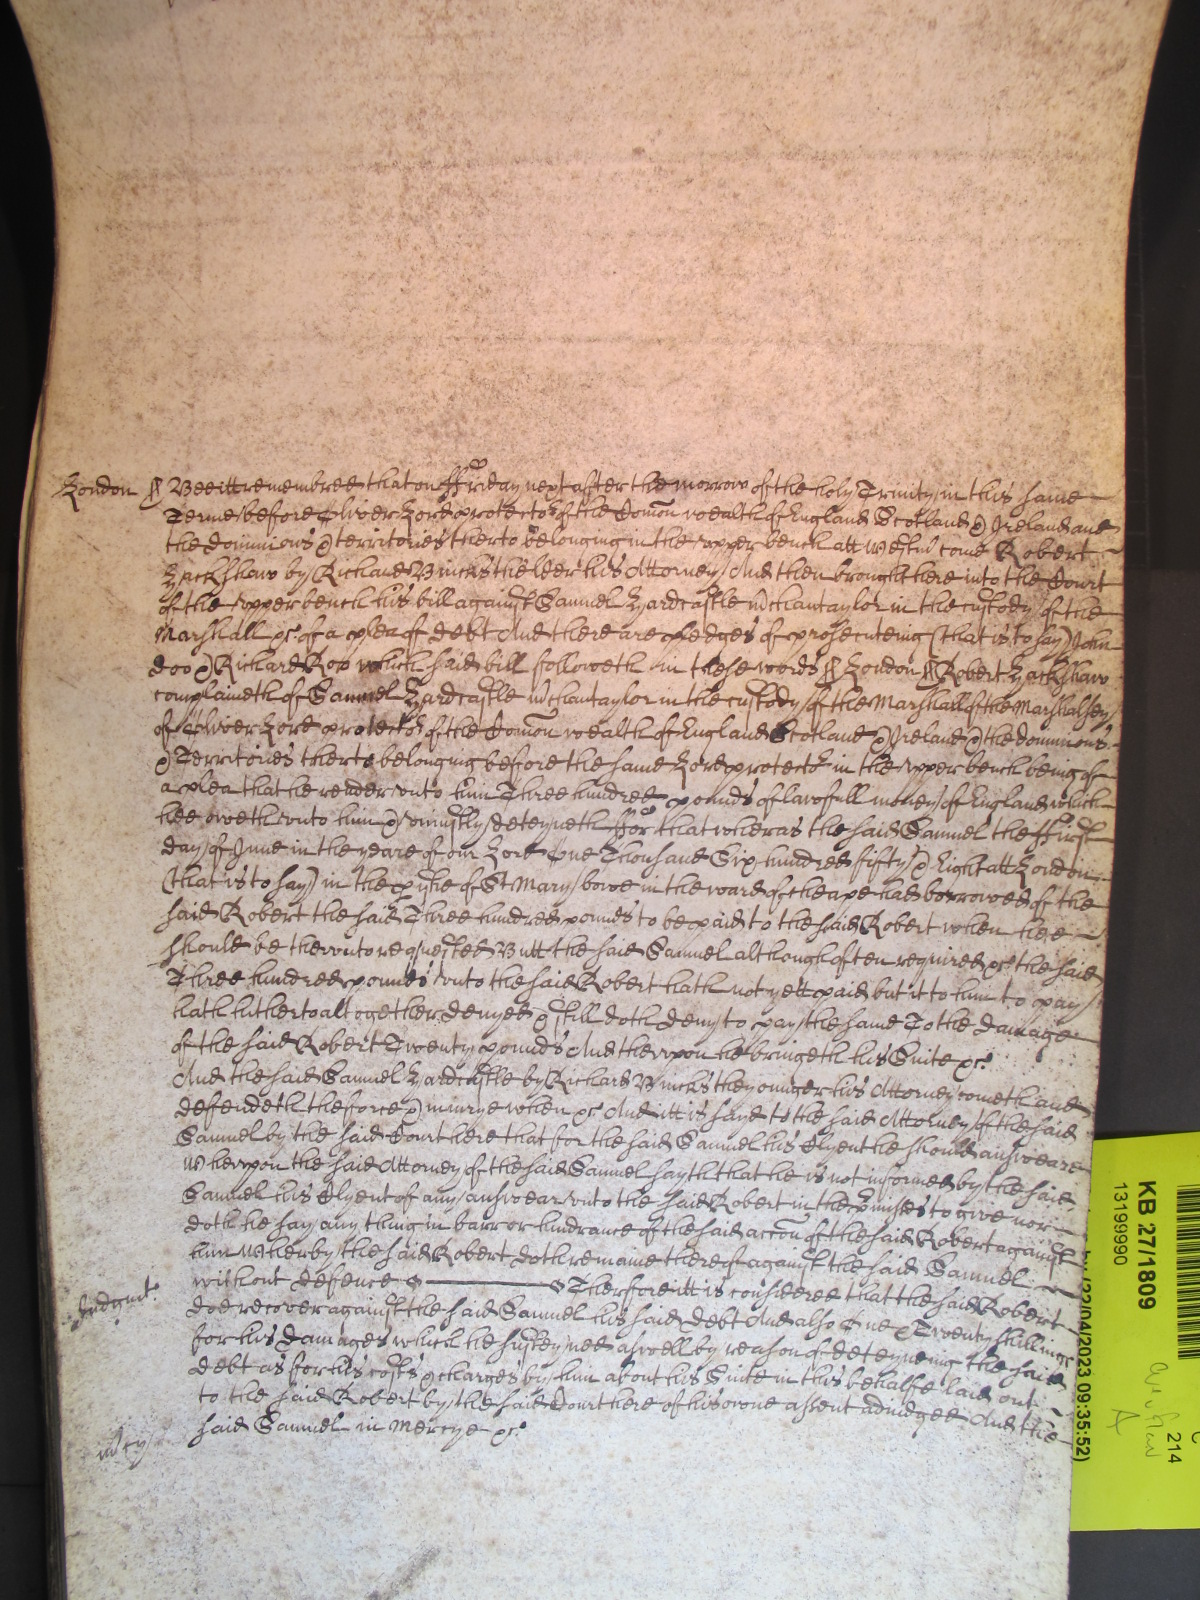 London ſſ Bee itt remembred that on ffriday next after the morrow of the holy Trinity in this same
Terme before Oliver Lord protector of the Comon wealth of England Scotland & Ireland and
the dominions & territories therto belonging in the upper bench att Westm come Robert
Lackshaw by Richard Wincks the elder his Attorney And then brought here into the Court
of the upper bench his bill against Samuel Hardcastle mchantaylor in the custody of the
Marshall &c. of a plea of debt And there are pledges of prosecuteing (that is to say) John
doo & Richard Roo which said bill followeth in these words ſſ London ſſ Robert Lackshaw
complaineth of Samuel Hardcastle mchantaylor in the custody of the Marshall of the Marshalsey
of Oliver Lord protector of the Comon wealth of England Scotland & Ireland & the dominions
& Territories therto belonging before the same Lord protector in the upper bench being of
a plea that he render unto him Three hundred pounds of lawfull money of England which
hee oweth unto him & uniustly deteyneth ffor that wheras the said Samuel the ffirst
day of June in the yeare of our Lord One Thousand Six hundred fifty & Eight att London
(that is to say) in the pishe of St Mary bowe in the ward of cheape had borrowed of the
said Robert the said Three hundred pounds to be paid to the said Robert when hee
should be therunto requested Butt the said Samuel although often required &c. the said
Three hundred pounds unto the said Robert hath not yett paid but it to him to pay
hath hitherto altogether denyed & still doth deny to pay the same To the damage
of the said Robert Twenty pounds And therupon he bringeth his Suite &c.
And the said Samuel Hardcastle by Richard Wincks the younger his Attorney cometh and
defendeth the force & iniurye when &c And itt is sayd to the said Attorney of the said
Samuel by the said Court here that for the said Samuel his Clyent he should answeare
Wherupon the said Attorney of the said Samuel sayth that he is not informed by the said
Samuel his Clyent of any answear unto the said Robert in the pmisses to give nor
doth he say any thing in barr or hindrance of the said accon of the said Robert against
him Wherby the said Robert doth remaine therof against the said Samuel
without defence &
Judgmt. Therfore itt is considered that the said Robert
doe recover against the said Samuel his said debt And also One & Twenty shillings
for his damages which he susteyned aswell by reason of deteyneing the said
debt as for his costs & charges by him about his Suite in this behalfe laid out
to the said Robert by the said Court here of his owne assent adiudged And the
mcy said Samuel in Mercye &c.
KB 27/1809
13199990
214
A
22/04/2023 09:35:52)